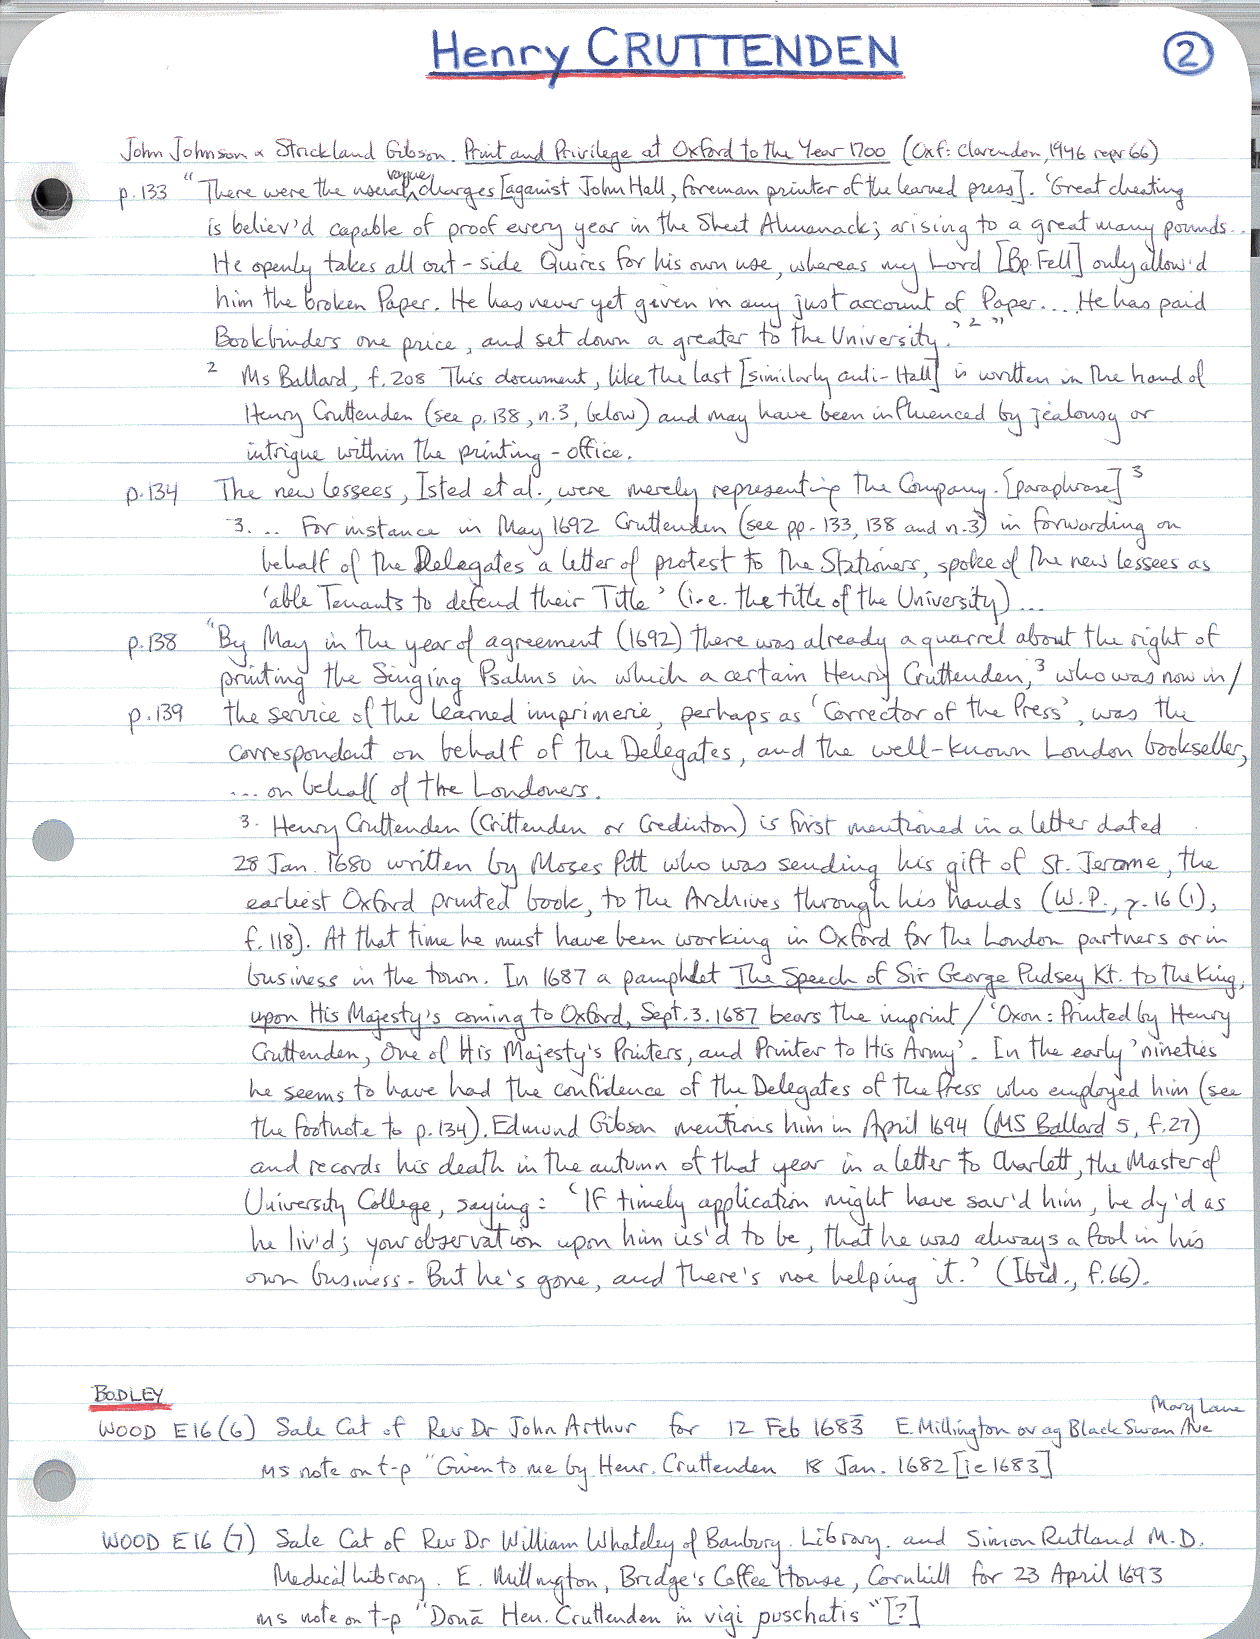 Henry CRUTTENDEN
2
John Johnson & Strickland Gibson. Print and Privilege at Oxford to the Year 1700 (Oxf: Clarendon, 1946 repr 66)
p.133 "There were the usual vague charges [against John Hall, foreman printer of the learned press]. 'Great cheating
is believ'd capable of proof every year in the Sheet Almanack; arising to a great many pounds...
He openly takes all out-side Quires for his own use, whereas my Lord [Bp. Fell] only allow'd
him the broken Paper. He has never yet given in any just account of Paper.... He has paid
Bookbinders one price, and set down a greater to the University.' 2 "
2 Ms Ballard, f. 208 This document, like the last [similarly anti-Hall] is written in the hand of
Henry Cruttenden (see p. 138, n.3, below) and may have been influenced by jealousy or
intrigue within the printing-office.
p.134 The new lessees, Isted et al., were merely representing the Company. [paraphrase] 3
3. ... For instance in May 1692 Cruttenden (see pp. 133, 138 and n.3) in forwarding on
behalf of the Delegates a letter of protest to the Stationers, spoke of the new lessees as
'able Tenants to defend their Title' (i.e. the title of the University)...
p.138 "By May in the year of agreement (1692) there was already a quarrel about the right of
printing the Singing Psalms in which a certain Henry Cruttenden,3 who was now in/
p.139 the service of the learned imprimerie, perhaps as 'Corrector of the Press', was the
correspondent on behalf of the Delegates, and the well-known London bookseller,
... on behalf of the Londoners.
3. Henry Cruttenden (Crittenden or Credinton) is first mentioned in a letter dated
28 Jan. 1680 written by Moses Pitt who was sending his gift of St. Jerome, the
earliest Oxford printed book, to the Archives through his hands (W.P., γ. 16 (1),
f. 118). At that time he must have been working in Oxford for the London partners or in
business in the town. In 1687 a pamphlet The Speech of Sir George Pudsey Kt. to the King,
upon His Majesty's coming to Oxford, Sept. 3. 1687 bears the imprint / 'Oxon: Printed by Henry
Cruttenden, One of His Majesty's Printers, and Printer to His Army'. In the early 'nineties
he seems to have had the confidence of the Delegates of the Press who employed him (see
the footnote to p. 134). Edmund Gibson mentions him in April 1694 (MS Ballard 5, f. 27)
and records his death in the autumn of that year in a letter to Charlett, the Master of
University College, saying: 'If timely application might have sav'd him, he dy'd as
he liv'd; your observation upon him us'd to be, that he was always a fool in his
own business. But he's gone, and there's noe helping it.' (Ibid., f. 66).
BODLEY
WOOD E16 (6) Sale Cat of Rev Dr John Arthur for 12 Feb 1683 E. Millington ov ag Black Swan Ave Mary Lane
MS note on t-p "Given to me by Henr. Cruttenden 18 Jan. 1682 [ie 1683]
WOOD E16 (7) Sale Cat of Rev Dr William Whateley of Banbury. Library. and Simon Rutland M.D.
Medical library. E. Millington, Bridge's Coffee House, Cornhill for 23 April 1693
MS note on t-p "Donā Hen. Cruttenden in vigi puschatis" [?]